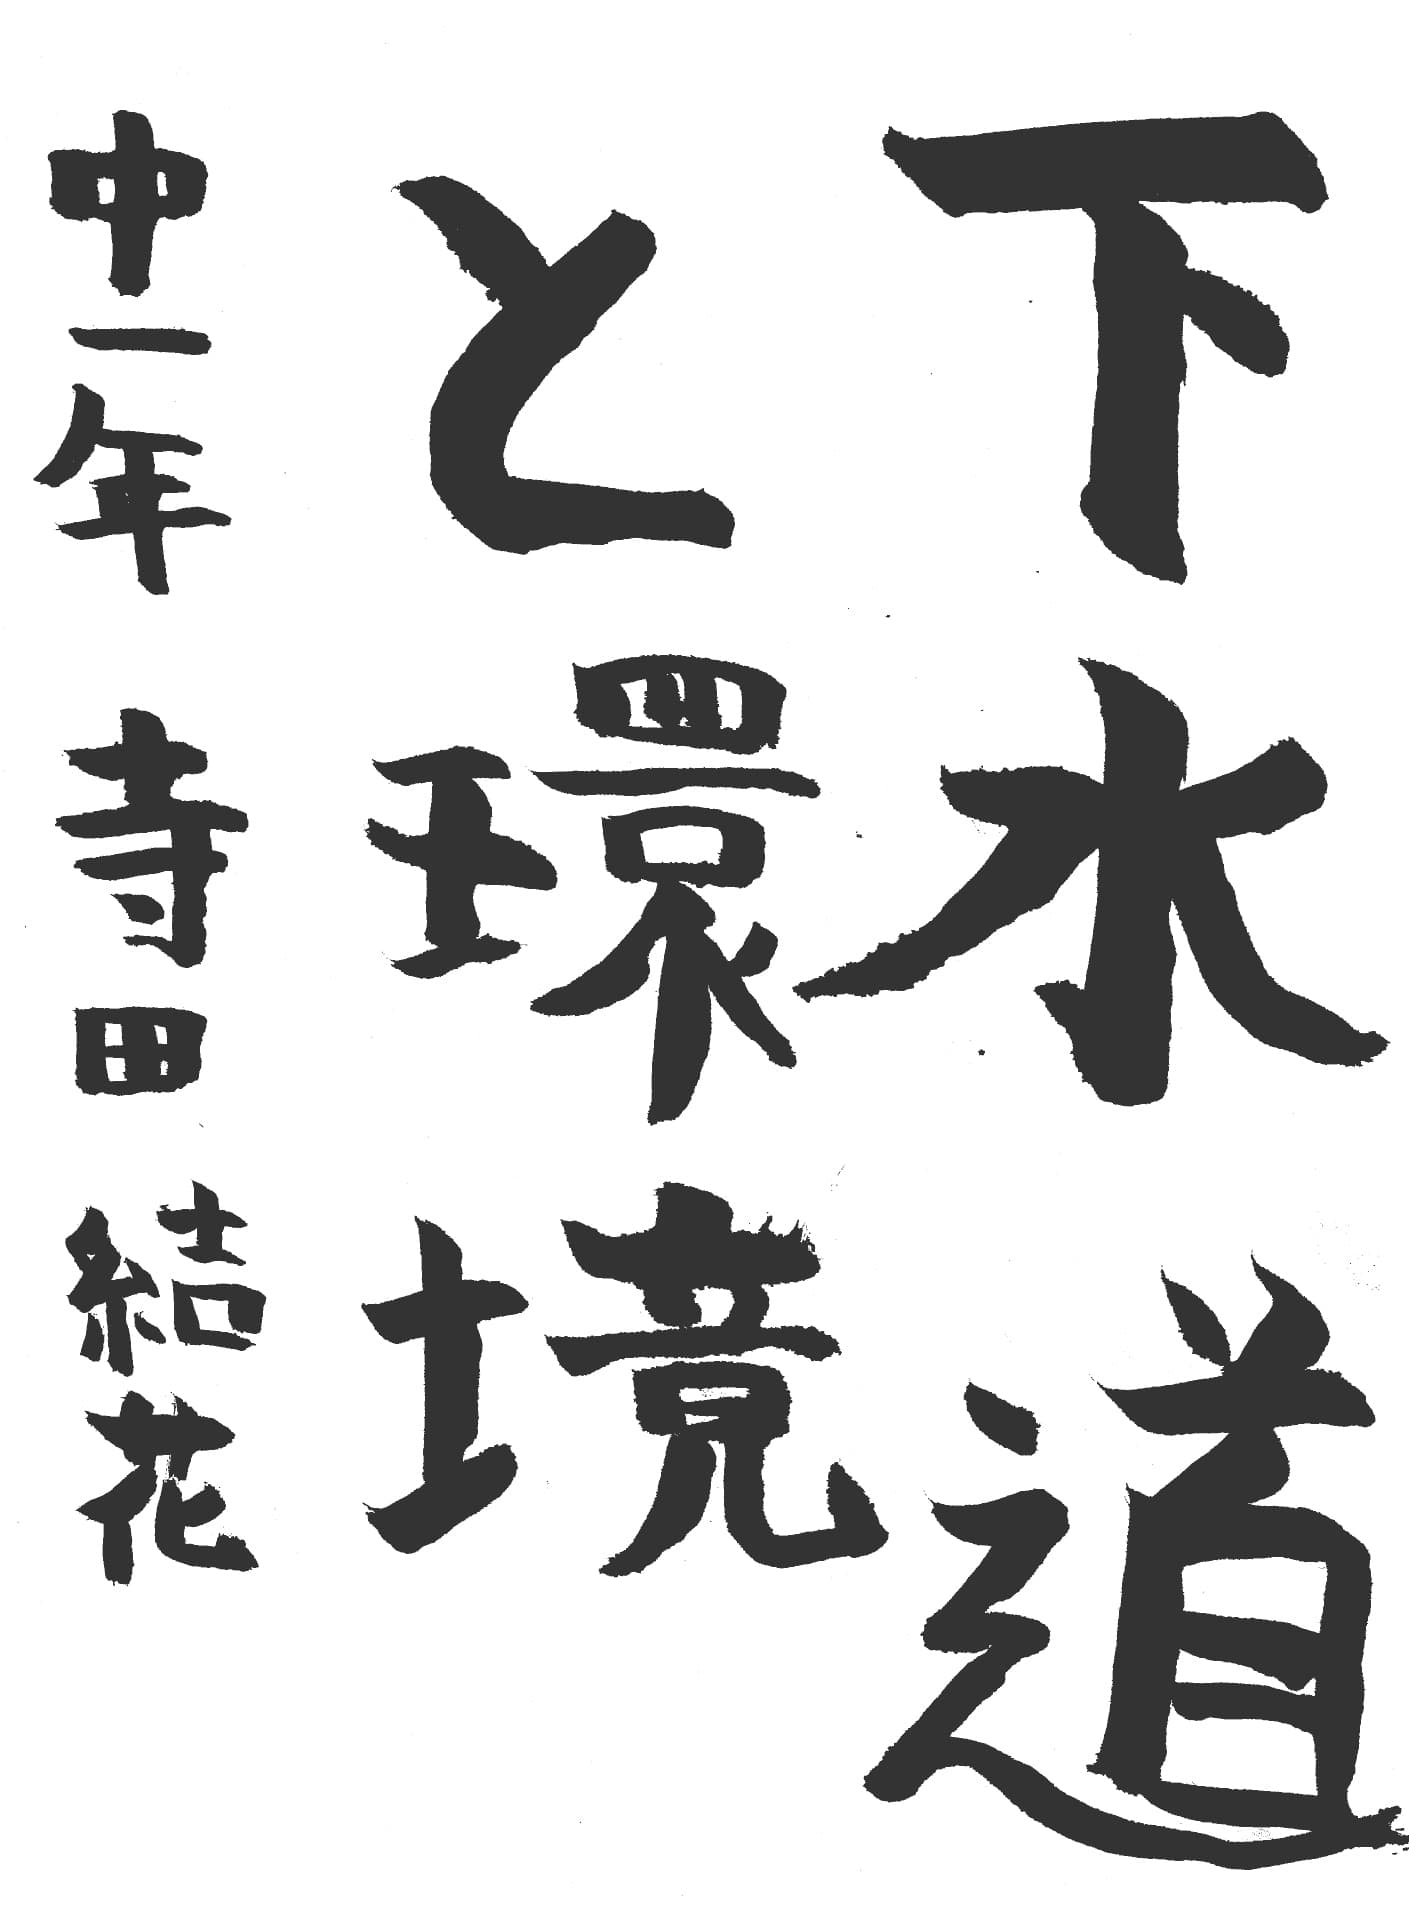 下水道
と環境
中一年 寺田 結花